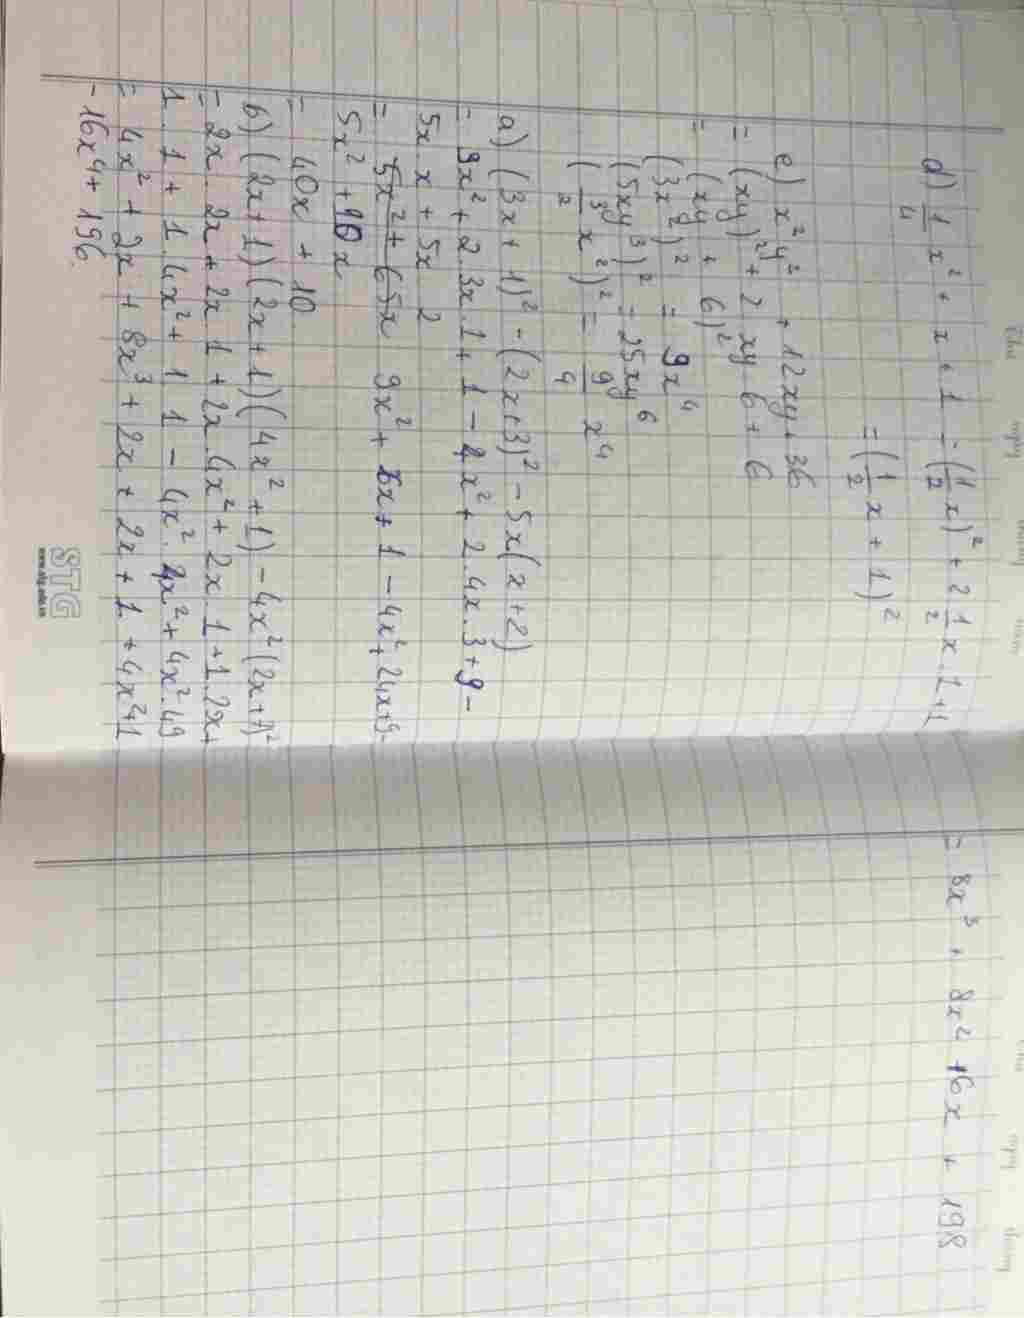 d) 1/4 x² + x + 1 = (1/2 x)² + 2 1/2 x . 1 + 1
= (1/2 x + 1)²
e) x²y² + 12xy + 36
= (xy)² + 2 xy 6 + 6
= (xy + 6)²
(3x²)² = 9x⁴
(5xy³)² = 25xy⁶
(3/2 x²)² = 9/4 x⁴
a) (3x + 1)² - (2x+3)² - 5x(x+2)
= 9x² + 2.3x.1 + 1 - 4x² + 2.4x.3 + 9 -
5x x + 5x 2
= 9x² + 6x + 1 - 4x² + 24x + 9 -
5x² + 10x
= 40x + 10
b) (2x+1)(2x+1)(4x²+1) - 4x²(2x+7)²
= 2x . 2x + 2x 1 + 2x 4x² + 2x 1 + 1.2x +
1 . 1 + 1 4x² + 1 1 - 4x² . 4x² + 4x² . 49
= 4x² + 2x + 8x³ + 2x + 2x + 1 + 4x²+1
- 16x⁴ + 196
STG
= 8x³ + 8x² + 6x + 198